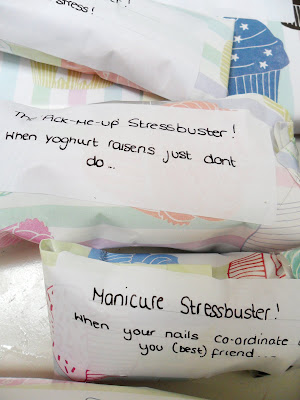 stress!
The Pick-Me-Up Stressbuster!
When yoghurt raisens just dont
do...
Manicure Stressbuster!
When your nails co-ordinate
you (best) friend...